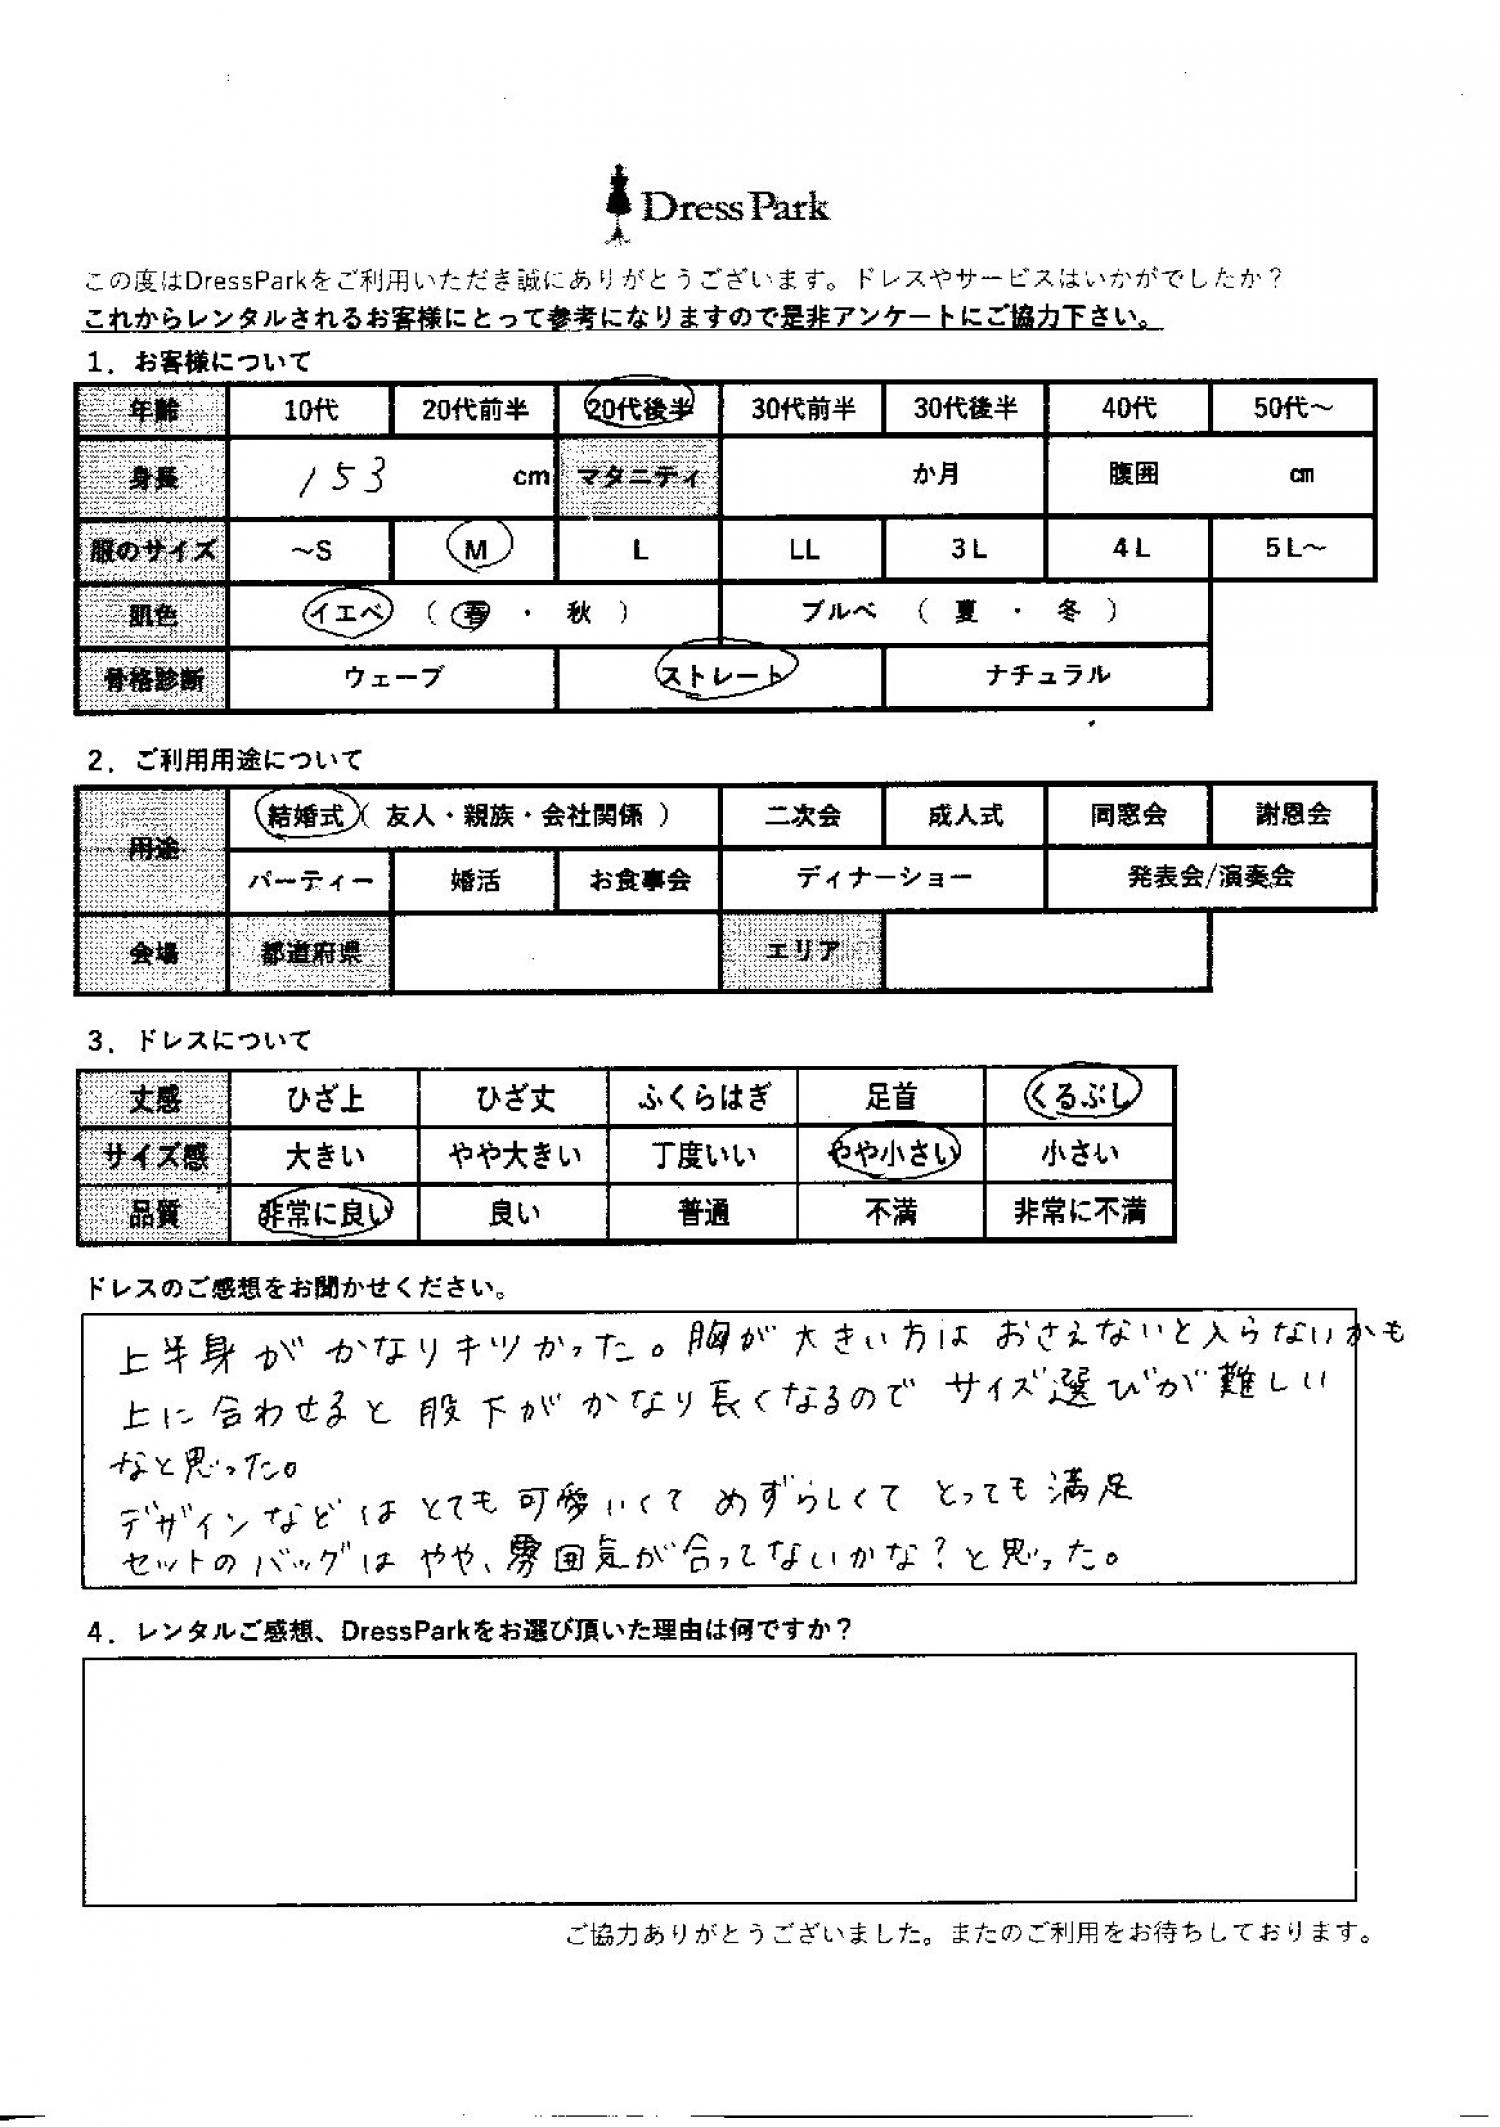 DressPark
この度はDressParkをご利用いただき誠にありがとうございます。ドレスやサービスはいかがでしたか？
これからレンタルされるお客様にとって参考になりますので是非アンケートにご協力下さい。
1．お客様について
年齢 10代 20代前半 20代後半 30代前半 30代後半 40代 50代～
身長 153 cm マタニティ か月 腹囲 cm
服のサイズ ～S M L LL 3L 4L 5L～
肌色 イエベ （ 春 ・ 秋 ） ブルベ （ 夏 ・ 冬 ）
骨格診断 ウェーブ ストレート ナチュラル
2．ご利用用途について
用途 結婚式（ 友人・親族・会社関係 ） 二次会 成人式 同窓会 謝恩会
パーティー 婚活 お食事会 ディナーショー 発表会/演奏会
会場 都道府県 エリア
3．ドレスについて
丈感 ひざ上 ひざ丈 ふくらはぎ 足首 くるぶし
サイズ感 大きい やや大きい 丁度いい やや小さい 小さい
品質 非常に良い 良い 普通 不満 非常に不満
ドレスのご感想をお聞かせください。
上半身がかなりキツかった。胸が大きい方はおさえないと入らないかも
上に合わせると股下がかなり長くなるのでサイズ選びが難しい
なと思った。
デザインなどはとても可愛いくてめずらしくてとっても満足
セットのバッグはやや、雰囲気が合ってないかな？と思った。
4．レンタルご感想、DressParkをお選び頂いた理由は何ですか？
ご協力ありがとうございました。またのご利用をお待ちしております。